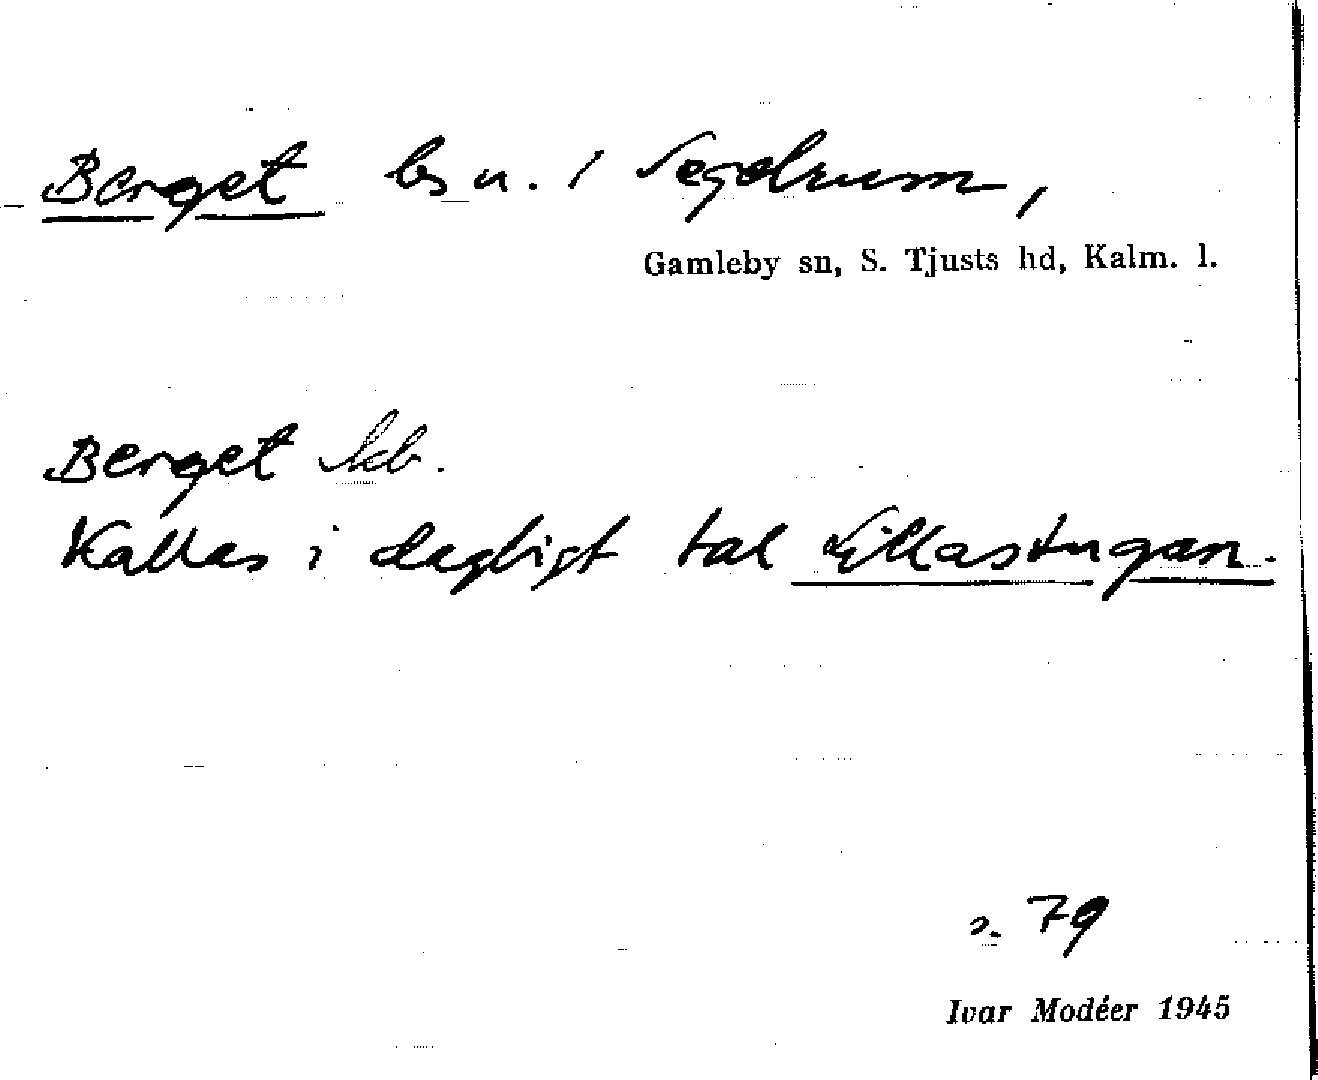 Berget bs n. i Segelrum,
Gamleby sn, S. Tjusts hd, Kalm. l.
Berget
Kallas i dagligt tal Lillastugan.
s. 79
Ivar Modéer 1945